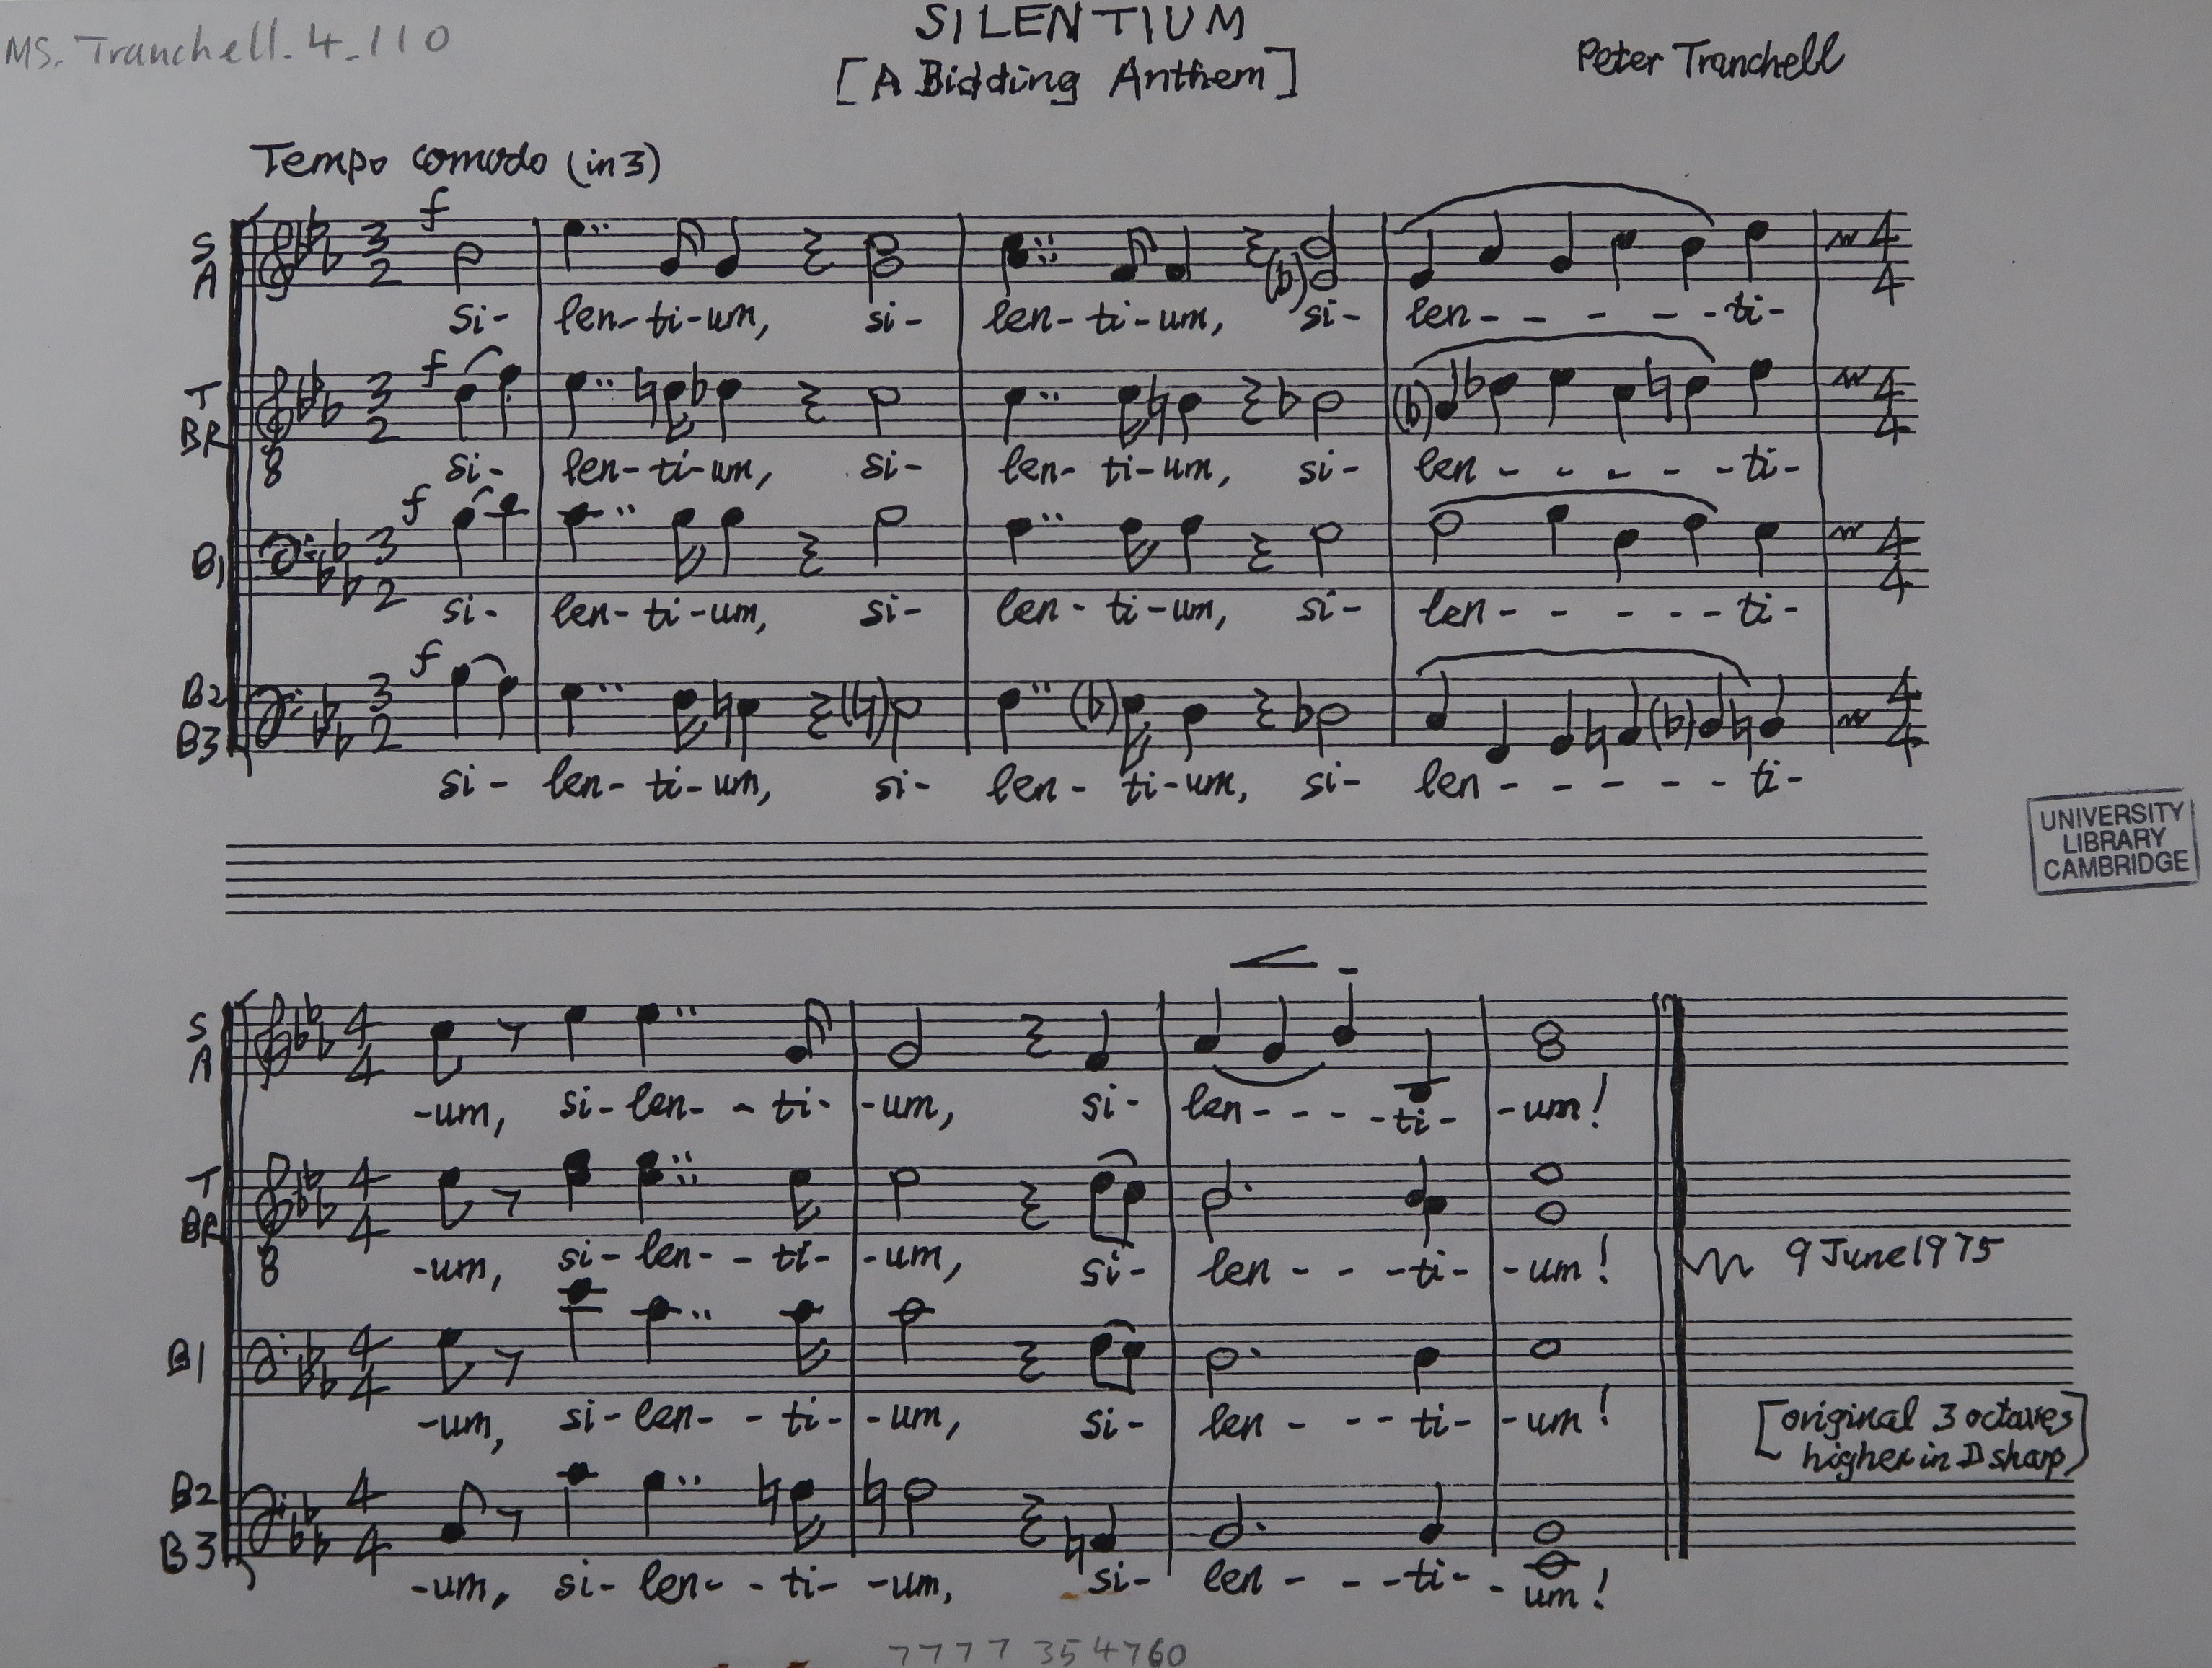 MS. Tranchell. 4. 110
SILENTIUM
[A Bidding Anthem]
Peter Tranchell
Tempo comodo (in 3)
S
A
f
3
2
4
4
si- len-ti-um, si- len-ti-um, si- len- - - - -ti-
T
BR
8
f
3
2
4
4
si- len-ti-um, si- len-ti-um, si- len - - - - -ti-
B1
f
3
2
4
4
si- len-ti-um, si- len-ti-um, si- len- - - - -ti-
B2
B3
f
3
2
4
4
si- len-ti-um, si- len-ti-um, si- len - - - - - ti-
UNIVERSITY
LIBRARY
CAMBRIDGE
S
A
4
4
-um, si-len- - ti- -um, si- len- - - -ti- -um!
T
BR
8
4
4
-um, si-len- - ti- -um, si- len - - -ti- -um!
9 June 1975
B1
4
4
-um, si-len- - ti- -um, si- len - - - ti- -um!
[original 3 octaves
higher in D sharp]
B2
B3
4
4
-um, si-len- - ti- -um, si- len - - -ti- -um!
7777 354760